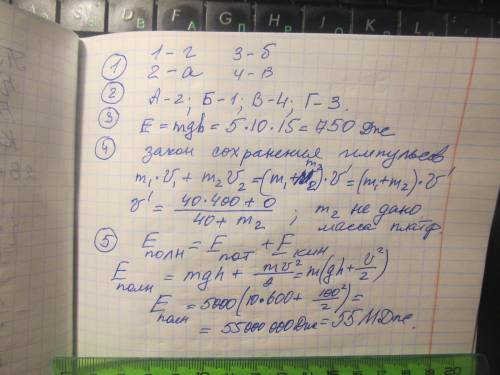 1 1-г 3-б
2-а 4-в
2 А-2; Б-1; В-4; Г-3.
3 E = mgh = 5·10·15 = 750 Дж
4 закон сохранения импульсов
m₁·V₁ + m₂V₂ = (m₁+m₂)·V' = (m₁+m₂)·V'
V' = (40·400+0)/(40+m₂) ; m₂ не дано,
масса платф.
5 Eполн = Eпот + Eкин
Eполн = mgh + mv²/2 = m(gh + V²/2)
Eполн = 5000(10·600 + 100²/2) =
= 55000000Дж = 55МДж.